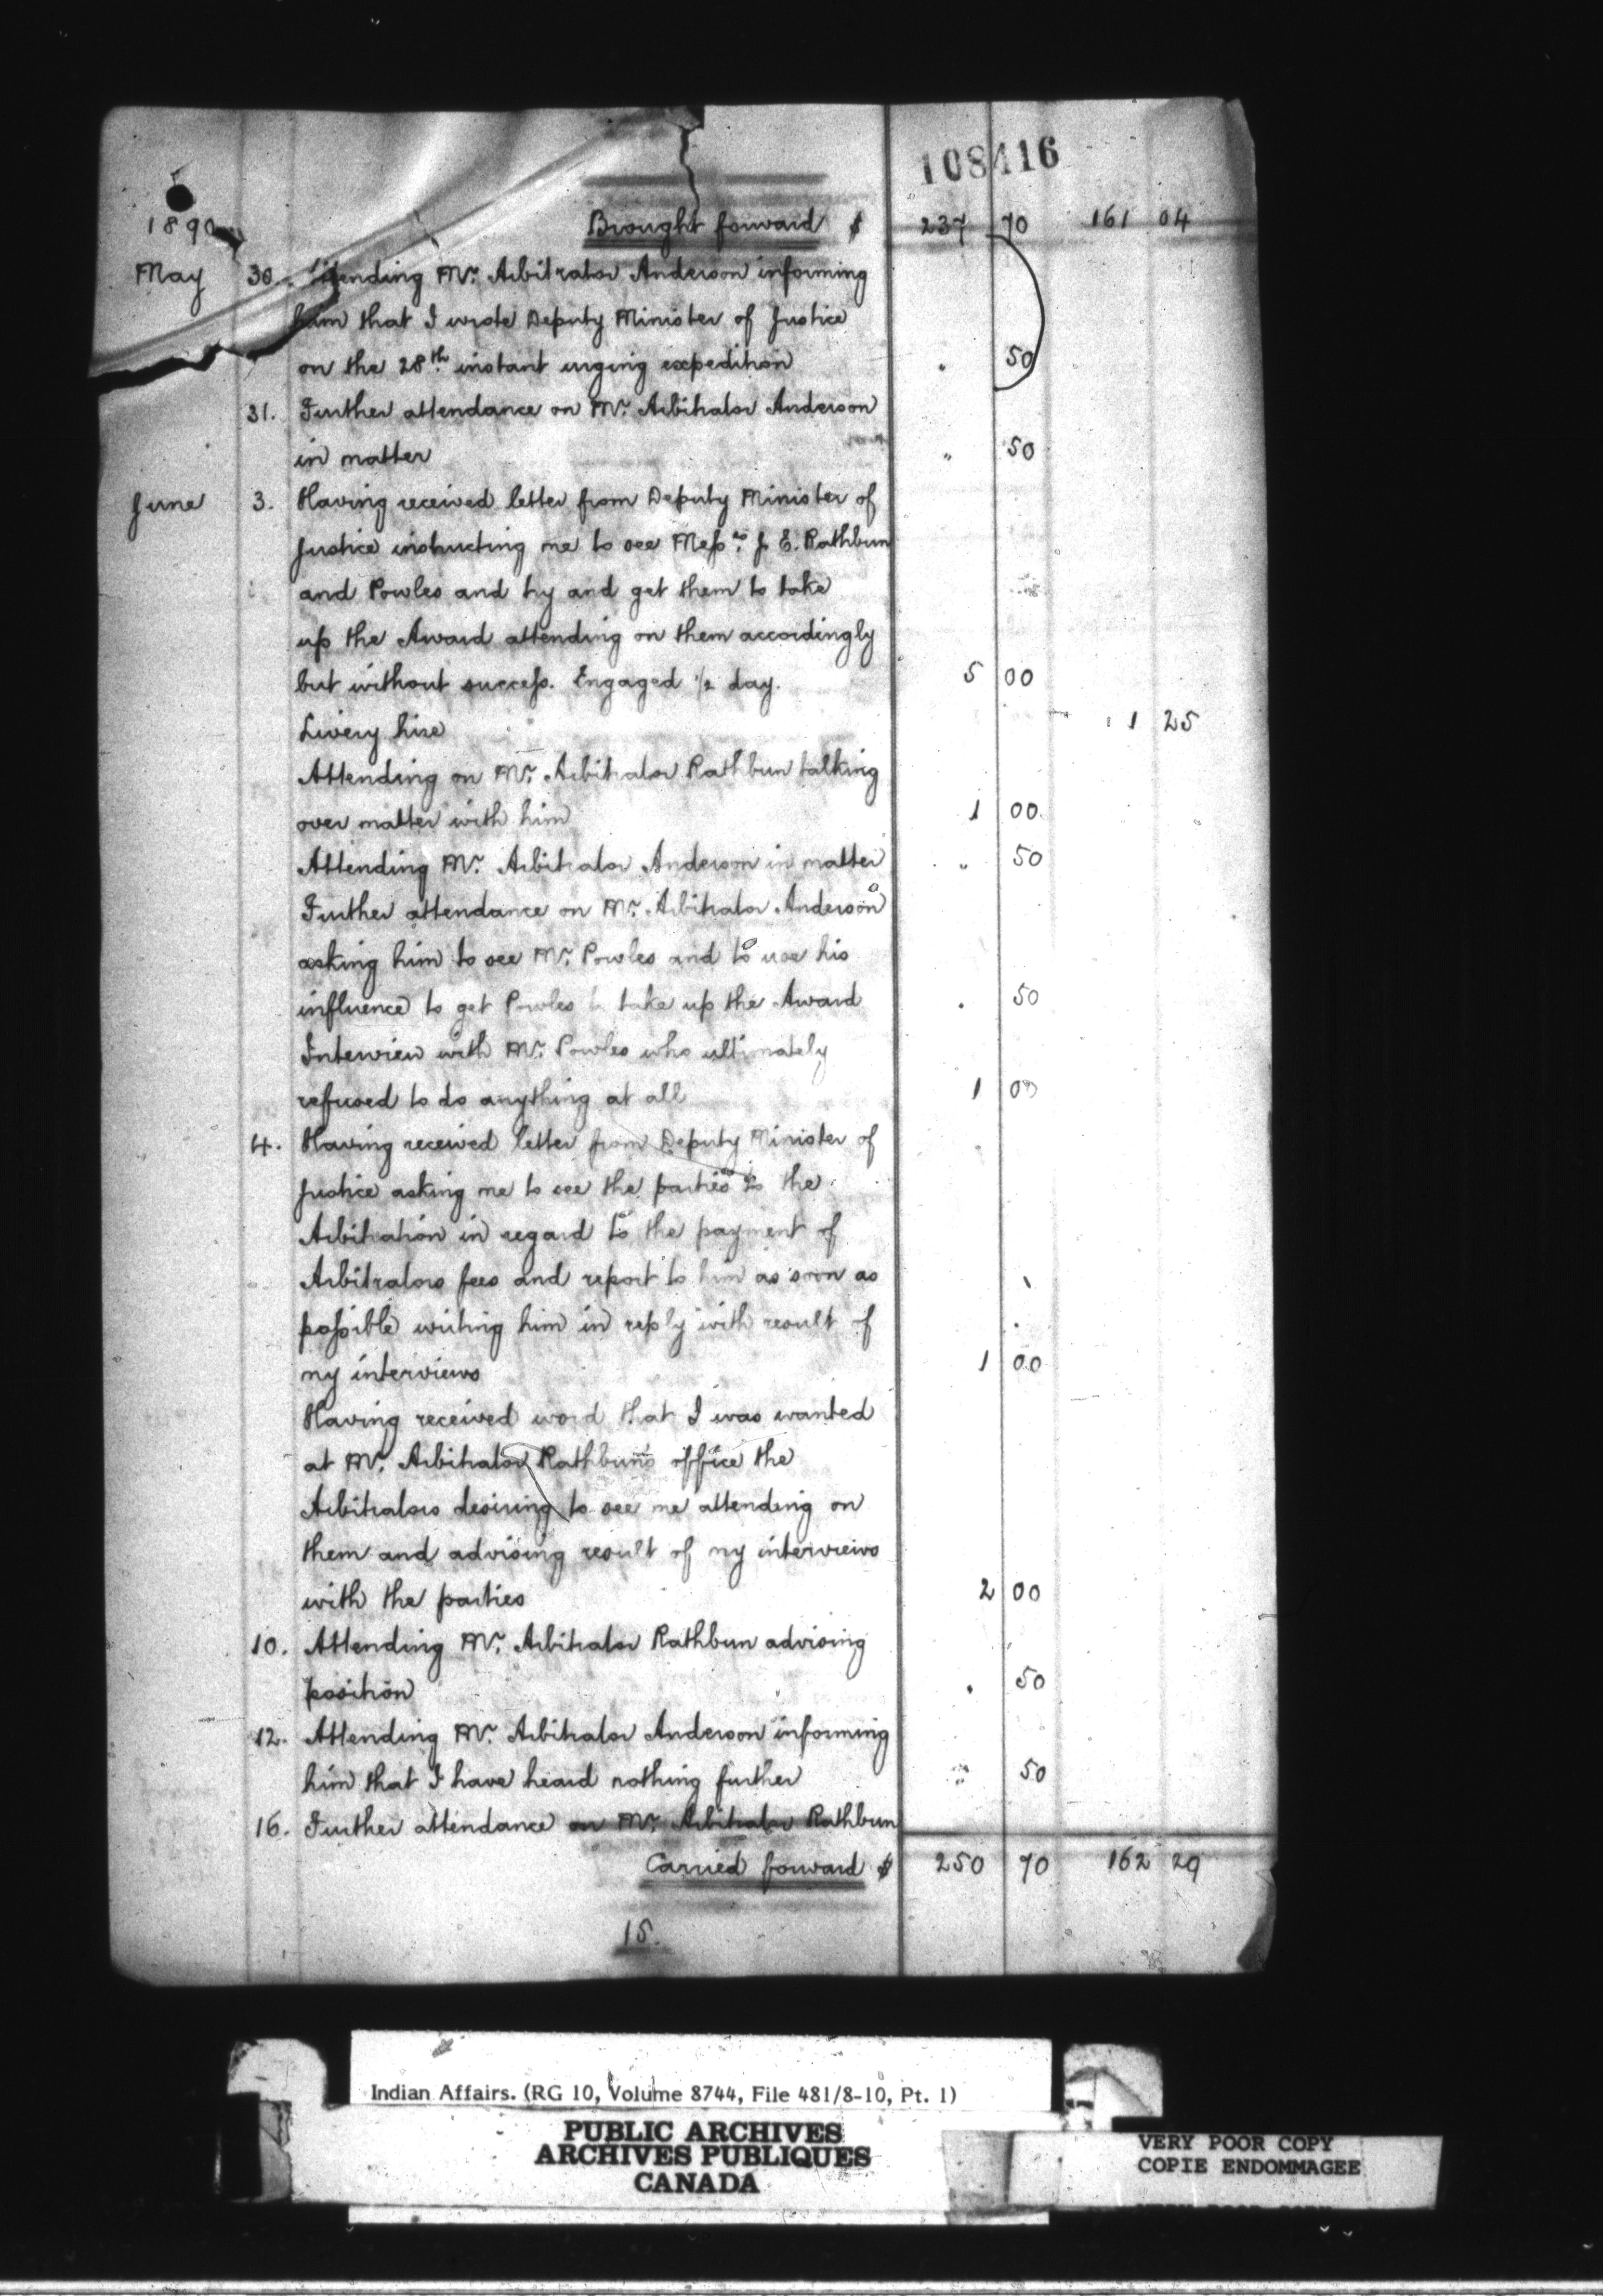 108416
1890 Brought forward $ 237 70 161 04
May 30. Attending Mr. Arbitrator Anderson informing
him that I wrote Deputy Minister of Justice
on the 28th instant urging expedition " 50
31. Further attendance on Mr. Arbitrator Anderson
in matter " 50
June 3. Having received letter from Deputy Minister of
Justice instructing me to see Messrs. J. E. Rathbun
and Powles and try and get them to take
up the Award attending on them accordingly
but without success. Engaged ½ day. 5 00
Livery hire 1 25
Attending on Mr. Arbitrator Rathbun talking
over matter with him 1 00
Attending Mr. Arbitrator Anderson in matter " 50
Further attendance on Mr. Arbitrator Anderson
asking him to see Mr. Powles and to use his
influence to get Powles to take up the Award " 50
Interview with Mr. Powles who ultimately
refused to do anything at all 1 00
4. Having received letter from Deputy Minister of
Justice asking me to see the parties to the
Arbitration in regard to the payment of
Arbitrators fees and report to him as soon as
possible writing him in reply with result of
my interviews 1 00
Having received word that I was wanted
at Mr. Arbitrator Rathbun's office the
Arbitrators desiring to see me attending on
them and advising result of my interviews
with the parties 2 00
10. Attending Mr. Arbitrator Rathbun advising
position " 50
12. Attending Mr. Arbitrator Anderson informing
him that I have heard nothing further " 50
16. Further attendance on Mr. Arbitrator Rathbun
Carried forward $ 250 70 162 29
15.
Indian Affairs. (RG 10, Volume 8744, File 481/8-10, Pt. 1)
PUBLIC ARCHIVES
ARCHIVES PUBLIQUES
CANADA
VERY POOR COPY
COPIE ENDOMMAGEE